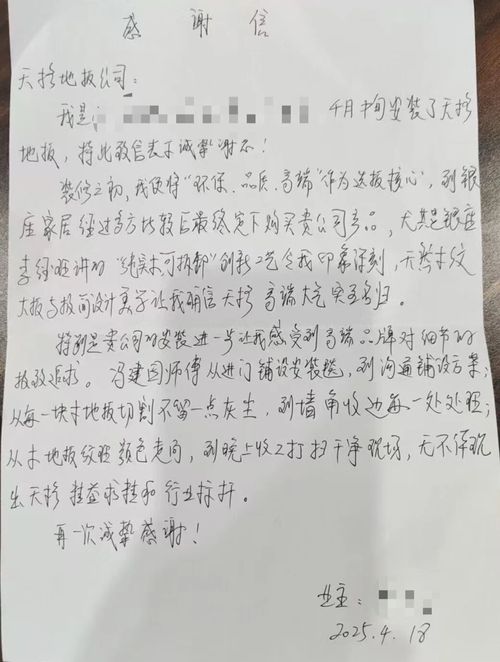 感谢信
天格地板公司：
我是 4月中旬安装了天格
地板，特此致信表示诚挚谢忱！
装修之初，我便将“环保、品质、高端”作为选板核心，到银
座家居经过多方比较后最终定下购买贵公司产品，尤其是银座
李经理讲的“纯实木可拆卸”创新工艺令我印象深刻，天然木纹
大板与极简设计美学让我确信天格高端大气实至名归。
特别是贵公司的安装进一步让我感受到高端品牌对细节的
极致追求。冯建国师傅从进门铺设安装毯，到沟通铺设方案；
从每一块木地板切割不留一点灰尘，到墙角收边每一处处理；
从木地板纹理颜色走向，到晚上收工打扫干净现场，无不体现
出天格精益求精和行业标杆。
再一次诚挚感谢！
业主：
2025.4.18